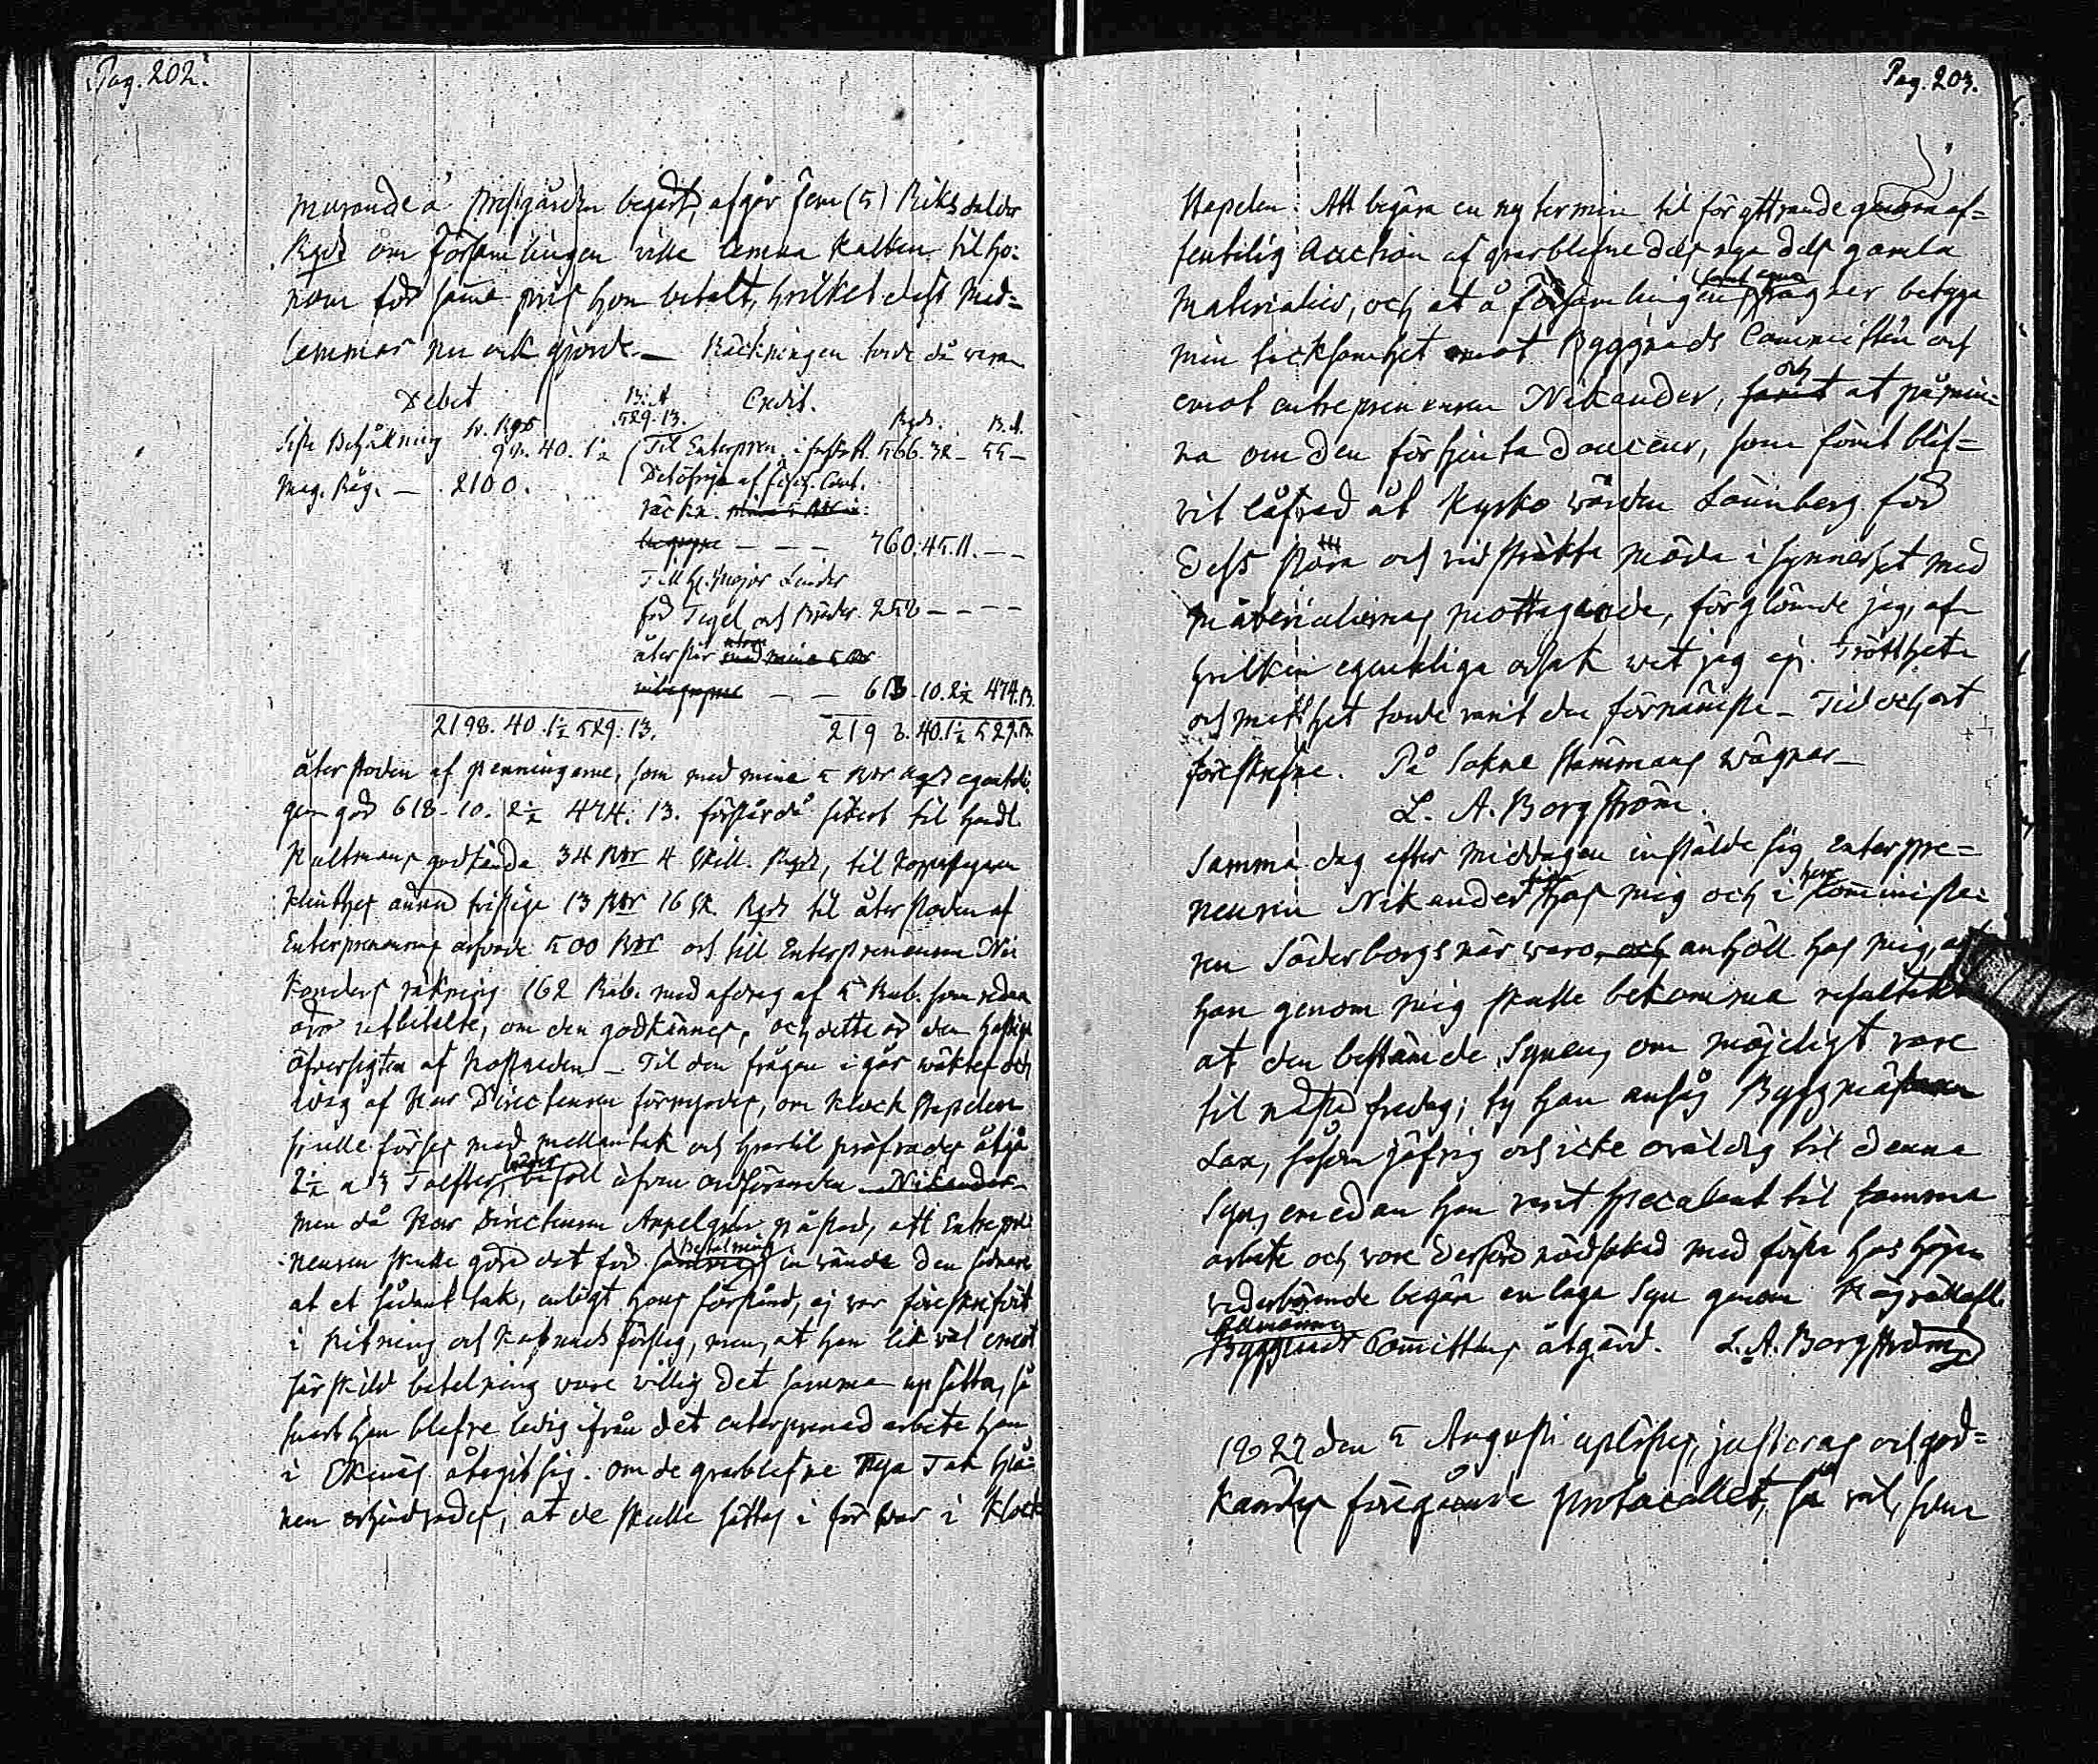 Pag. 202.
murande å Prestgården begärt, afgår fem (5) Riksdaler
Rgds om församlingen ville lemna kalken til ho-
nom för samma pris hon betalt, hvilket dess med-
lemmar nu ock gjorde. — Räkningen torde då vara
Debet B: A. Credit.
Sista Behållning Sv. Rgds 529.13. Rgds. B. A.
98. 40. 1½ Til Enterpren. 566. 32 — 55 —
Mag. Räg. — 2100. Detöfriga af
räckn.
— — — 760. 45. 11. — —
Till H. Major Linder
för Tegel och Bräder 258 — — — —
återstår
— — 613. 10. 2½ 474. 13.
2198. 40. 1½ 529. 13. 2198. 40. 1½ 529. 13.
återstoden af penningarne, som med mina 5 RDr Rgds egentli-
gen gör 618. 10. 2½ 474. 13. förslår då säkert til Handl.
Hultmans godkända 34 RDr 4 Skill. Rgds, til Kopparslagaren
13 RDr 16 sk. Rgds til återstoden af
500 RDr och till Entrepreneuren Ni-
kanders räkning 162 Rub. med afdrag af 5 Rub. som redan
äro utbetalte, om den godkännes, och detta är den hastiga
öfversigten af kostnaden. — Til den frågan i går wäktes och
idag af Herr Directeuren förnyades, om Klock stapelen
skulle förses med mellantak och härtil pröfvades åtgå
2½ a 3 Tolfter, bräder
men då Herr Directeuren Appelgren påstod, att Entrepre-
neuren skulle göra det för Betalning inwände den sednare
at et sådant tak, enligt hans förstånd, ej var föreskrifvit
i Ritning och Kostnads förslag, men, at han lik väl emot
särskild betalning vore villig det samma upsätta, så
snart han blefve ledig ifrån det enterprenad arbete han
i Ekenäs åtagit sig. Om de qvarblefne nya Tak
nen, at de skulle sättas i förwar i Klock
Pag. 203.
Stapelen. Att begära en ny termin til förytrande genom of-
fentelig Auction af qvarblefne dels nya dels gamla
Materialier, och at å Församlingens samt egna vägnar betyga
min tacksamhet emot Byggnads Committén och
emot entrepreneuren Nikander, samt och at påmin-
na om den förtjenta douceur, som förut blif-
vit låfvad åt Kyrko värden Lönnberg för
Dess stora och vidsträkta möda i synnerhet med
materialiernas mottagande, förglömde jag, af
hvilken egentliga orsak wet jag ej. Trötthet
och matthet torde varit den förnämste. — Tid och ort
föreskrefne. På Sokne stämmans wägnar —
L. A. Borgström.
Samma dag efter middagen instälde sig Enterpre-
neuren Nikander hos mig och i herr Comministe-
ren Söderborgs när varo, och anhöll hos mig, at
han genom mig skulle bekomma resultatet
at den bestämde Synen, om möjeligt vore
til nästa fredag; ty han ansåg Byggmästaren
Lax, såsom jäfvig och icke oväldig til denna
Syn, emedan han varit Specatant til samma
arbete och vore derföre nödsakad med första hos höga
vederbörande begära en laga Syn genom
Allmänna
Byggnads Committens åtgärd. L. A. Borgström
1827 den 5 Augusti uplästes, justeras och god-
kändes föregående Protocollet, så väl, som